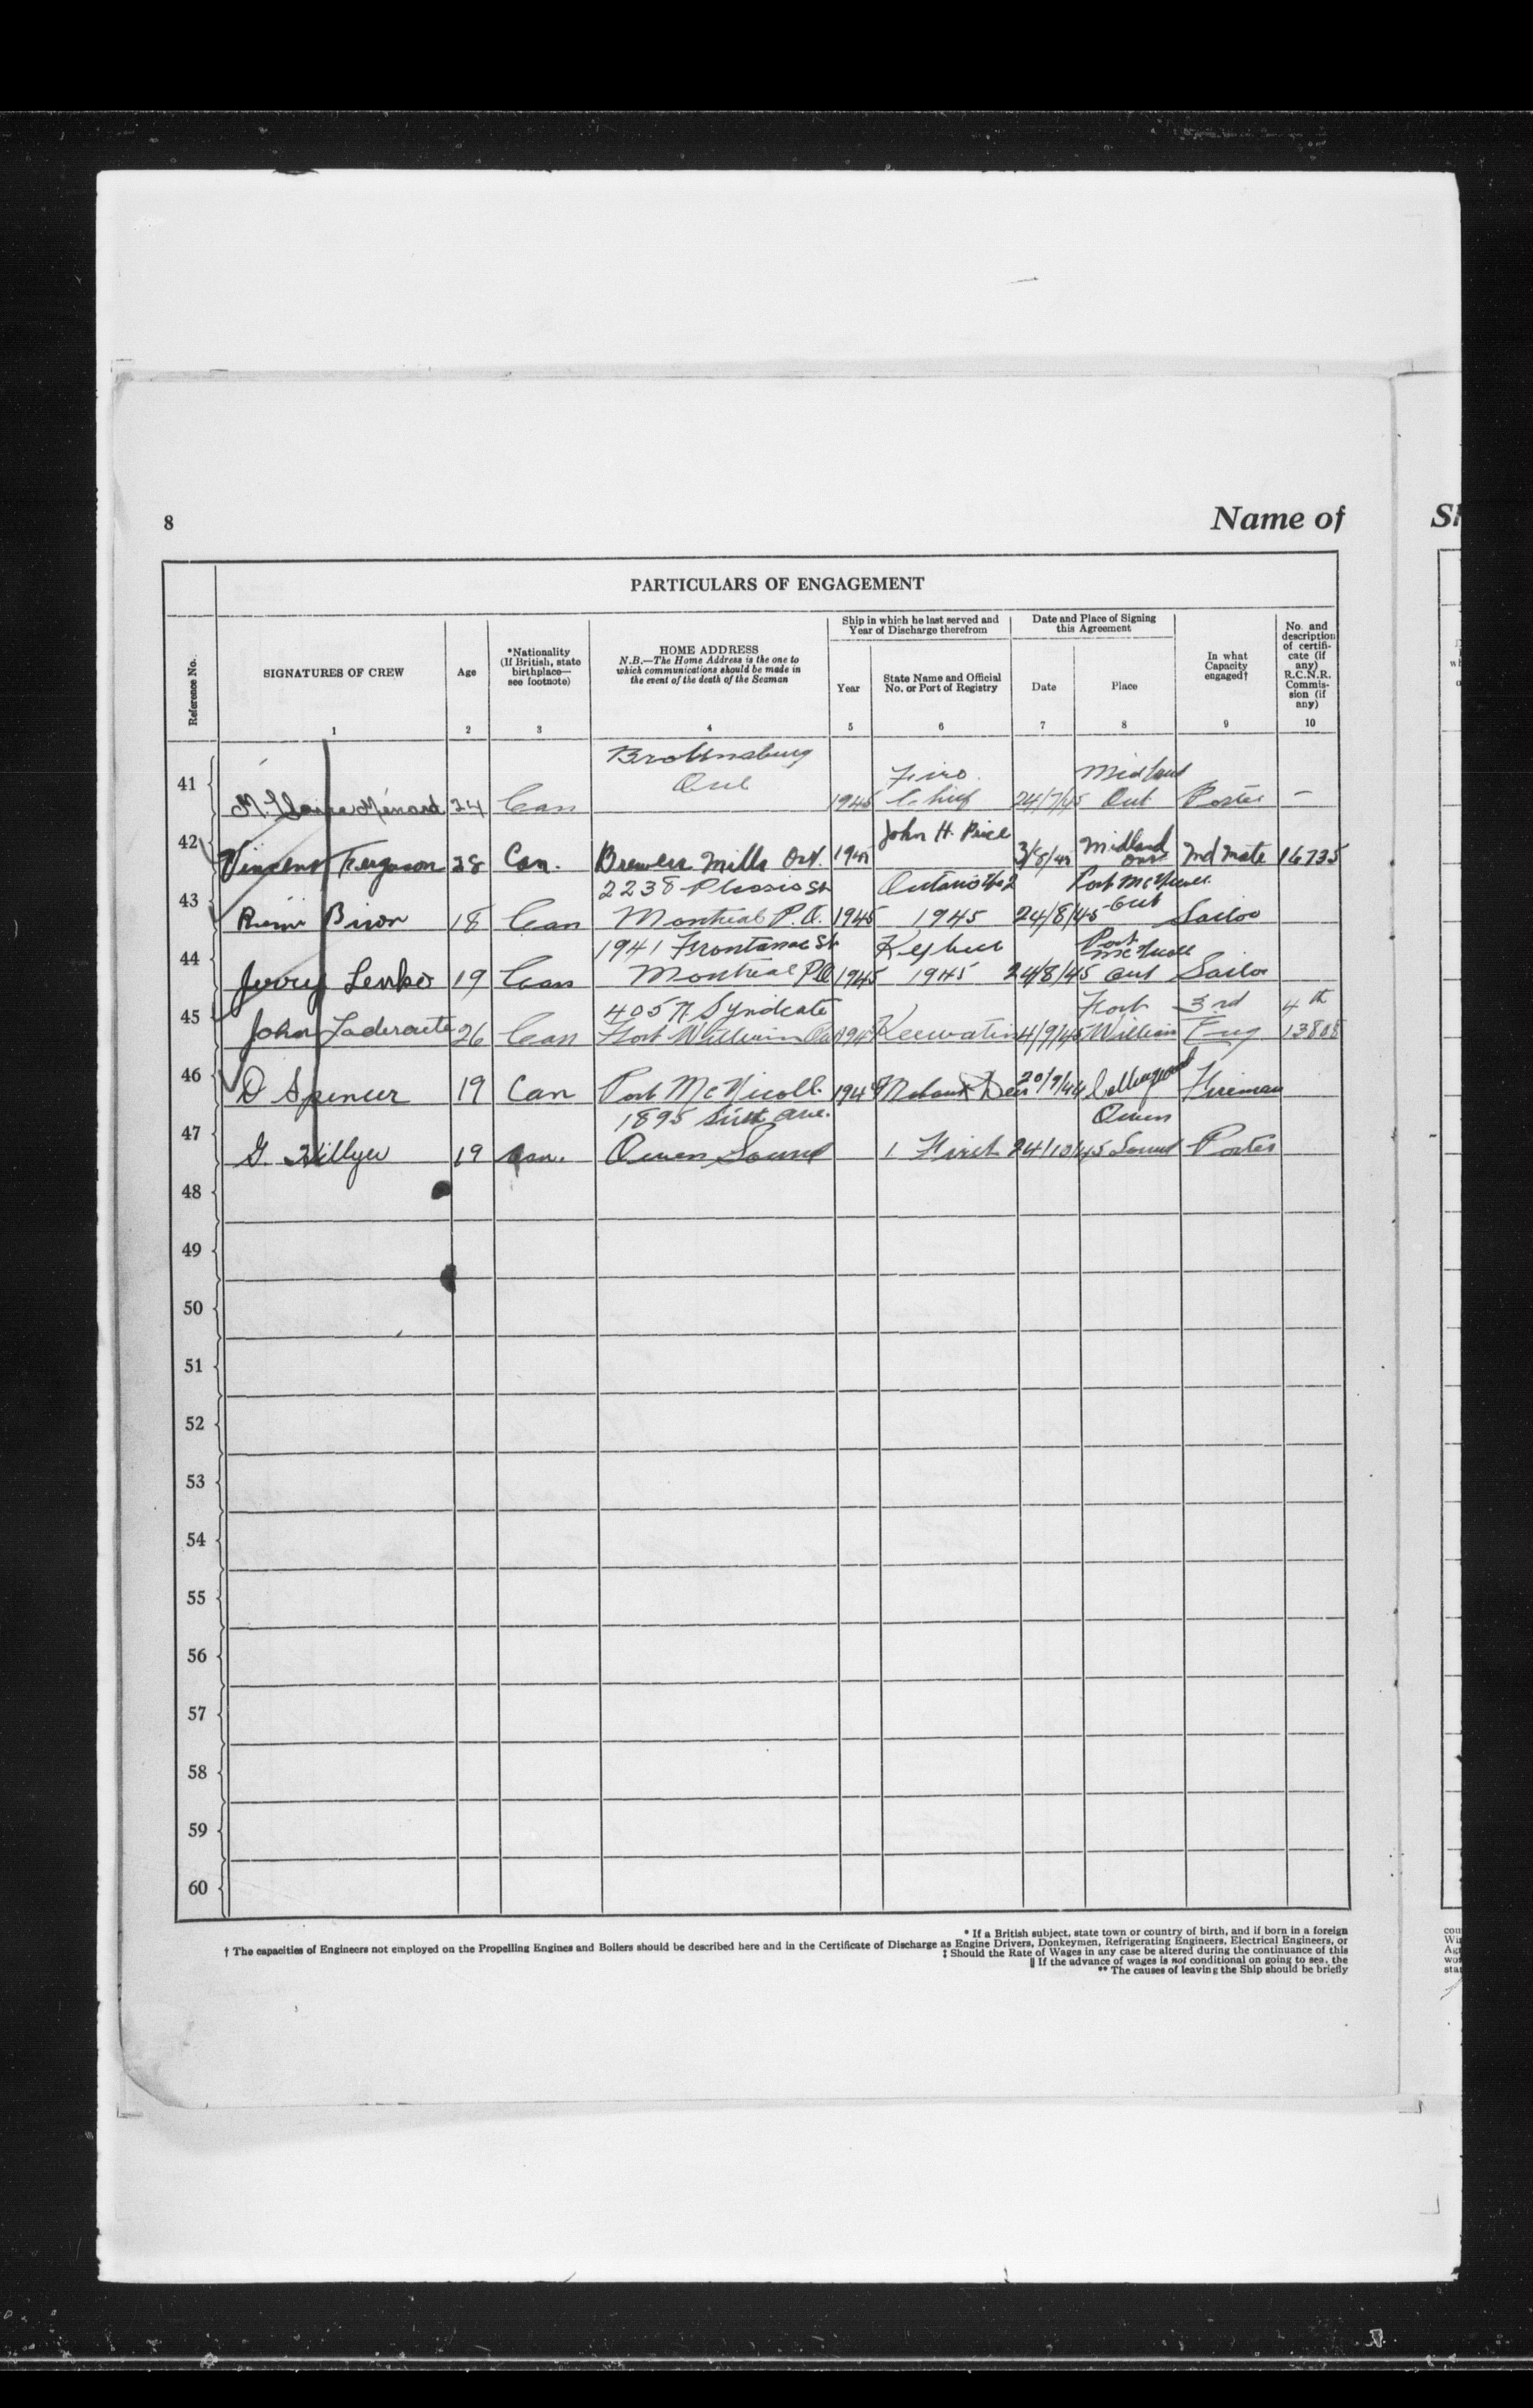 8
Name of
PARTICULARS OF ENGAGEMENT
Reference No.
SIGNATURES OF CREW
Age
*Nationality
(If British, state
birthplace—
see footnote)
HOME ADDRESS
N.B.—The Home Address is the one to
which communications should be made in
the event of the death of the Seaman
Ship in which he last served and
Year of Discharge therefrom
Year
State Name and Official
No. or Port of Registry
Date and Place of Signing
this Agreement
Date
Place
In what
Capacity
engaged†
No. and
description
of certifi-
cate (if
any)
R.C.N.R.
Commis-
sion (if
any)
1 2 3 4 5 6 7 8 9 10
Brownsburg
Midland
41 M. Ménard 24 Can 1945 Chief 24/7/45 Ont Porter —
John H. Price
42 Vincent Ferguson 28 Can. Brewers Mills Ont. 1945 3/8/45 Midland Ont 2nd Mate 16735
2238 Plessis St Ontario No 2 Port McNicoll
43 Biron 18 Can Montreal P.Q. 1945 1945 24/8/45 Ont Sailor
1941 Frontanac St Port McNicoll
44 Jerry Lenko 19 Can Montreal P.Q. 1945 1945 24/8/45 Ont Sailor
405 N Syndicate Fort 3rd 4th
45 John Laderoute 26 Can Fort William Keewatin 4/9/45 William Eng 13808
46 D Spencer 19 Can Port McNicoll. 20/9/44 Collingwood Fireman
1895 Sixth Ave. Owen
47 G. Hillyer 19 Can. Owen Sound 24/10/45 Sound Porter
48
49
50
51
52
53
54
55
56
57
58
59
60
* If a British subject, state town or country of birth, and if born in a foreign
† The capacities of Engineers not employed on the Propelling Engines and Boilers should be described here and in the Certificate of Discharge as Engine Drivers, Donkeymen, Refrigerating Engineers, Electrical Engineers, or
‡ Should the Rate of Wages in any case be altered during the continuance of this
|| If the advance of wages is not conditional on going to sea, the
** The causes of leaving the Ship should be briefly